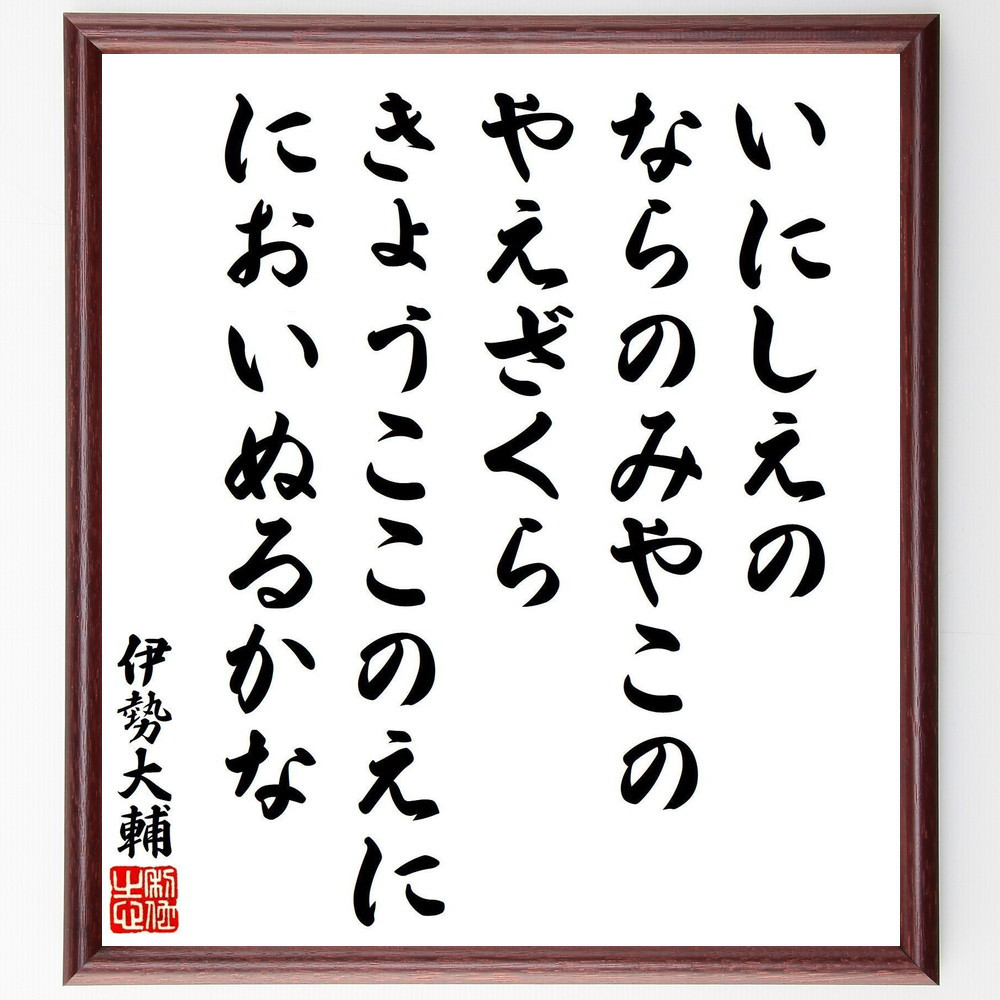 いにしえの
ならのみやこの
やえざくら
きょうここのえに
においぬるかな
伊勢大輔